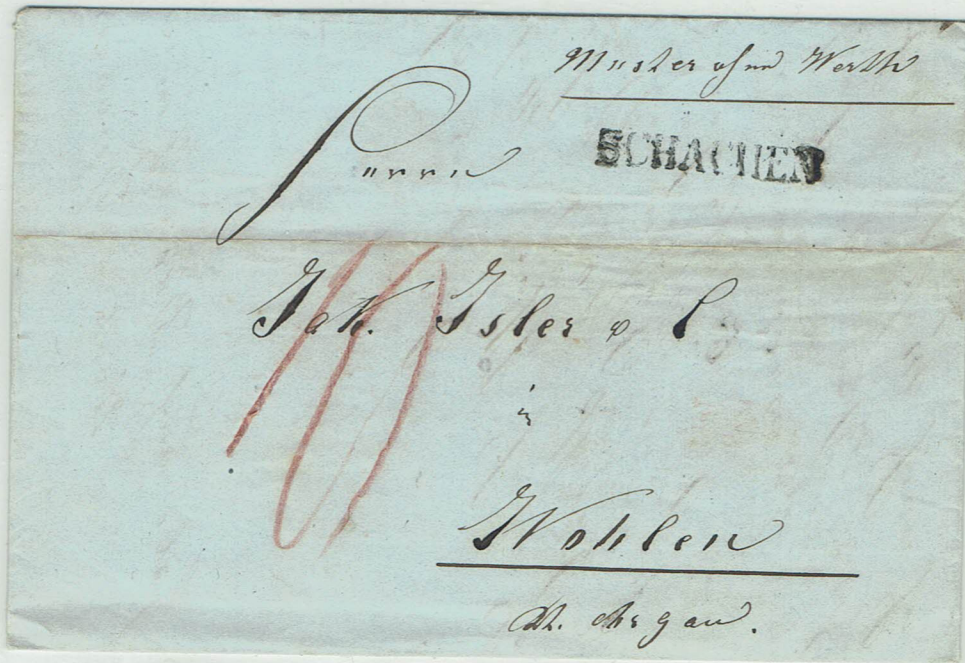 Muster ohne Werth
SCHACHEN
Herrn
Jak. Isler & C
in
Wohlen
Kt. Argau.
10